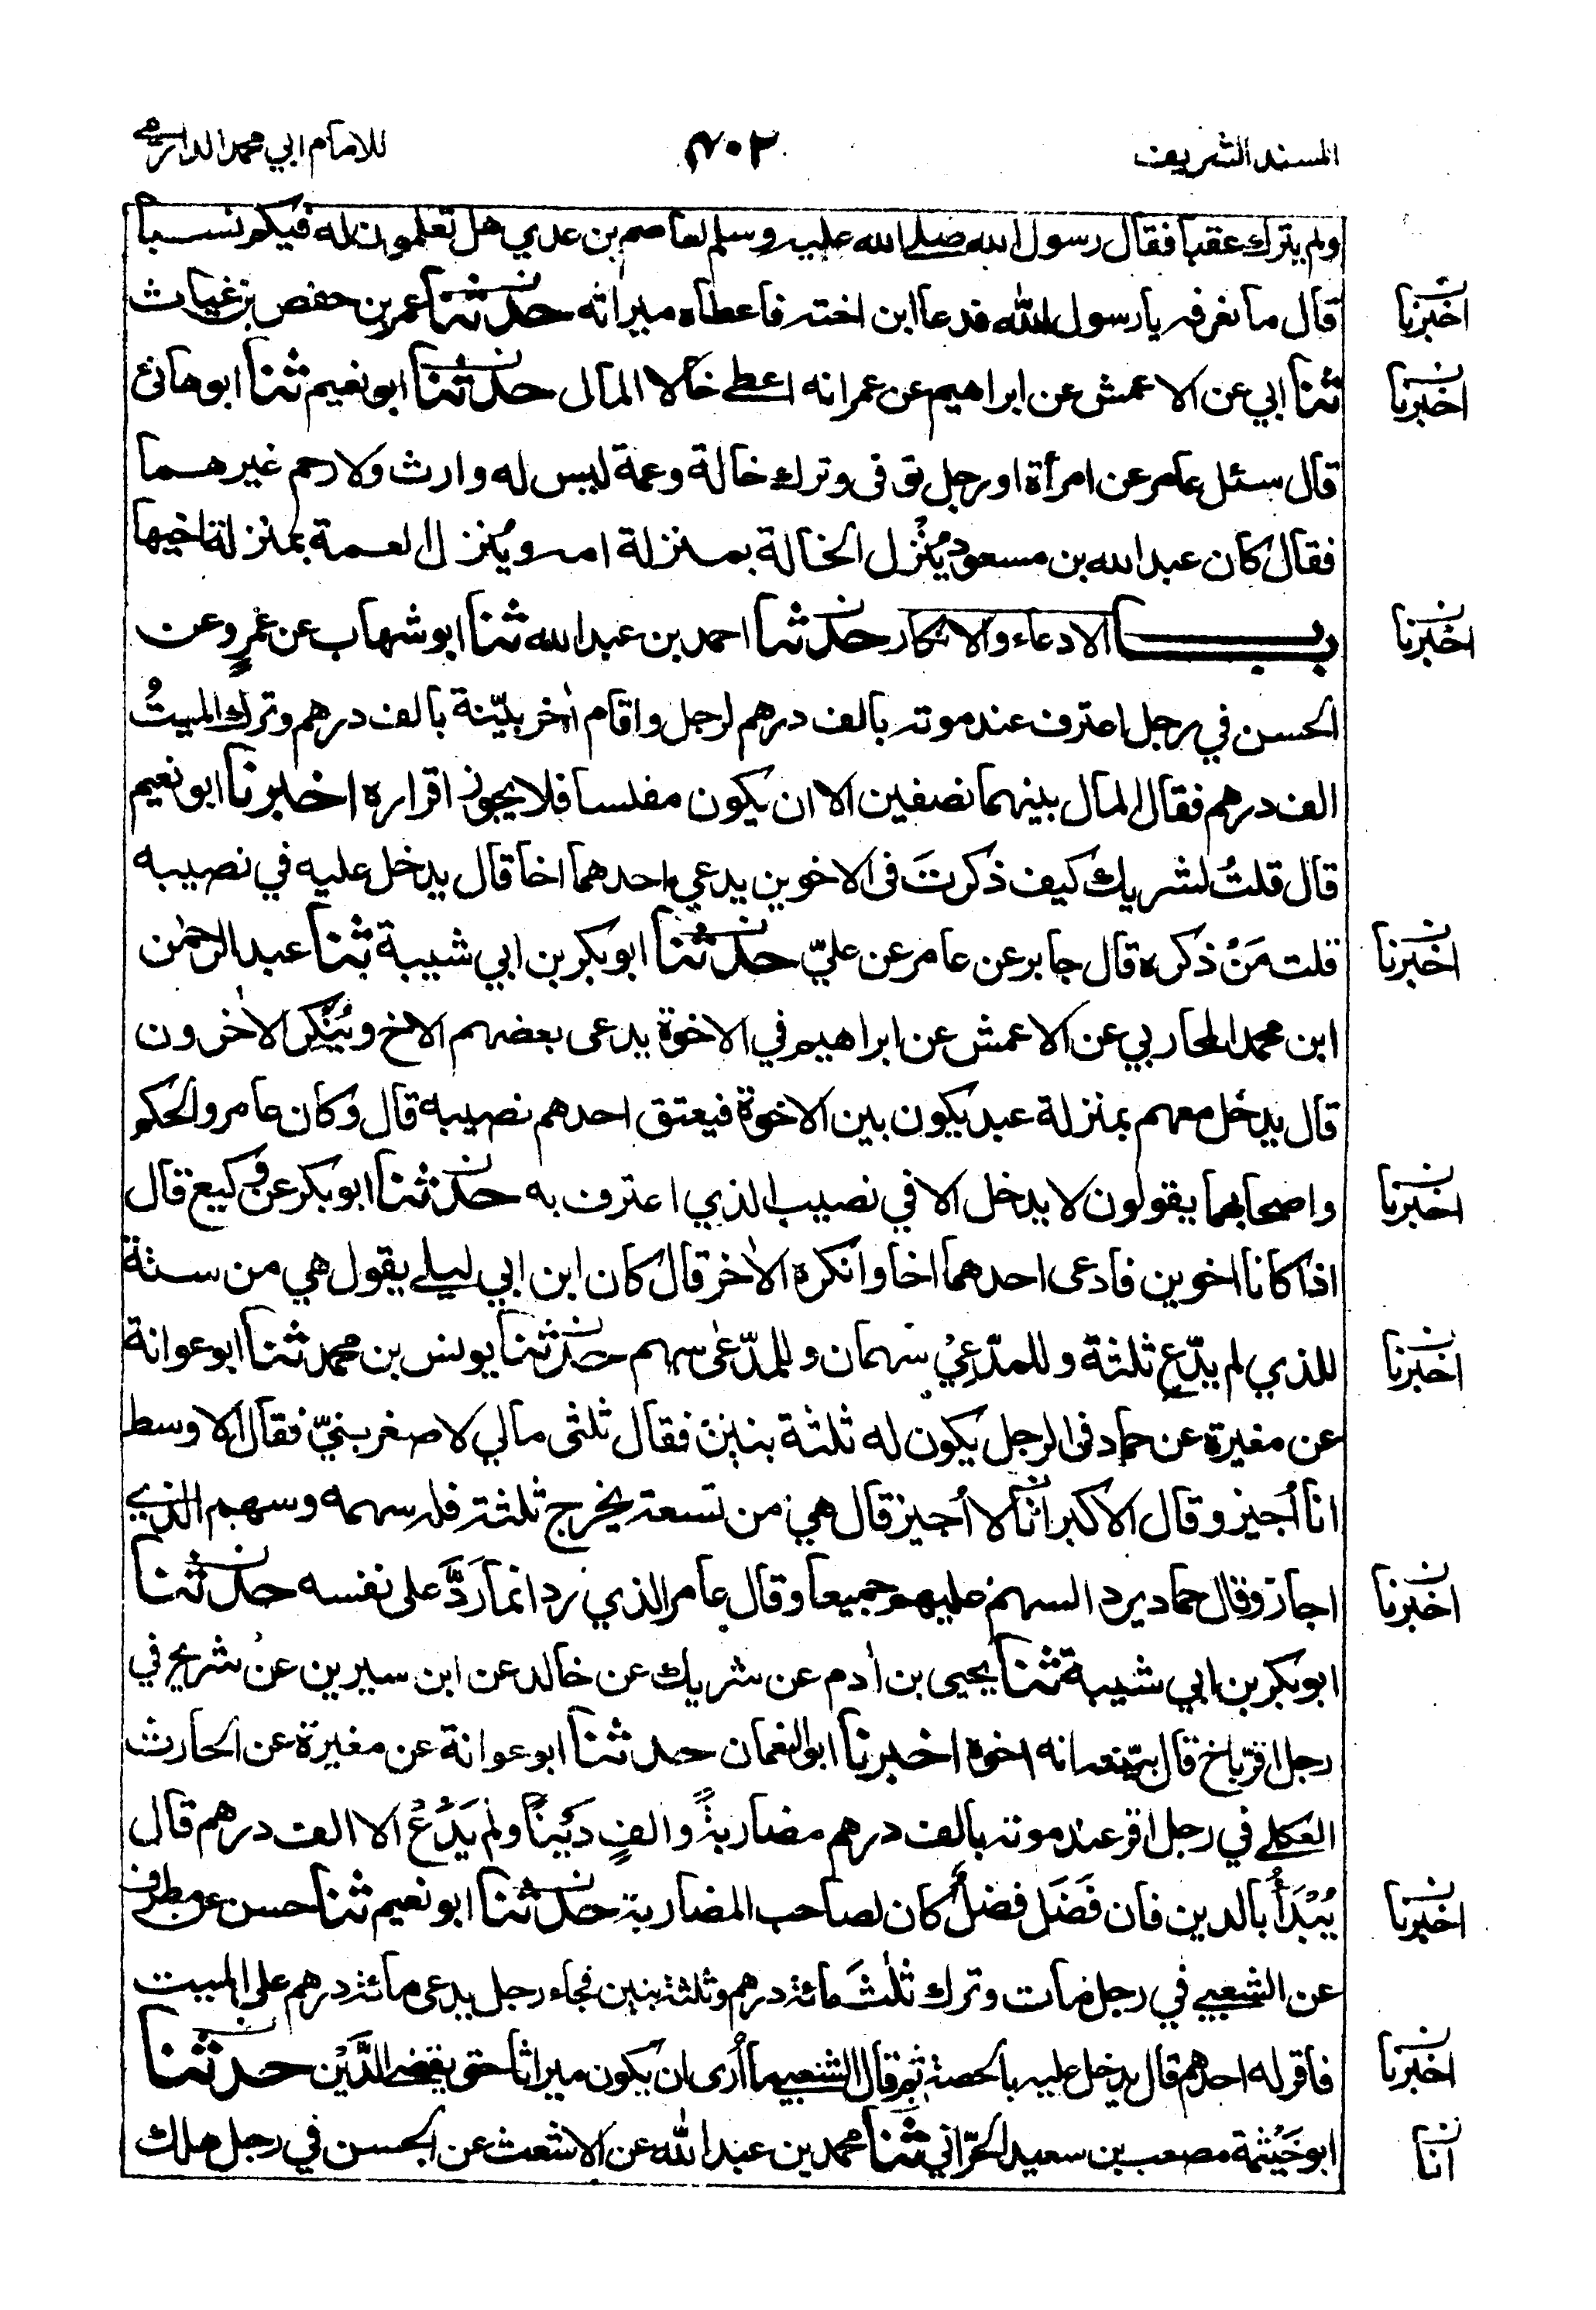 المسند الشريف ٤٠٢ للامام ابي محمد الدارمي
ولم يترك عقبا فقال رسول الله صلى الله عليه وسلم لعاصم بن عدي هل تعلمون له فيكم نسبا
قال ما نعرفه يا رسول الله فدعا ابن اخته فاعطاه ميراثه حدثنا عمر بن حفص بن غياث
ثنا ابي عن الاعمش عن ابراهيم عن عمر انه اعطى خالا المال حدثنا ابو نعيم ثنا ابو هانئ
قال سئل عامر عن امرأة او رجل توفى وترك خالة وعمة ليس له وارث ولا رحم غيرهما
فقال كان عبد الله بن مسعود يُنْزل الخالة بمنزلة امه ويُنزل العمة بمنزلة اخيها
باب الادعاء والانكار حدثنا احمد بن عبد الله ثنا ابو شهاب عن عمرٍو عن
الحسن في رجل اعترف عند موته بالف درهم لرجل واقام اٰخر بيّنة بالف درهم وترك الميتُ
الف درهم فقال المال بينهما نصفين الا ان يكون مفلسا فلا يجوز اقراره اخبرنا ابو نعيم
قال قلتُ لشريك كيف ذكرتَ فى الاخوين يدعي احدهما اخا قال يدخل عليه في نصيبه
قلت مَنْ ذكره قال جابر عن عامر عن عليّ حدثنا ابو بكر بن ابي شيبة ثنا عبد الرحمٰن
ابن محمد المحاربي عن الاعمش عن ابراهيم في الاخوة يدعى بعضهم الاخ ويُنْكِر الاٰخرون
قال يدخل معهم بمنزلة عبد يكون بين الاخوة فيعتق احدهم نصيبه قال وكان عامر والحكم
واصحابهما يقولون لا يدخل الا في نصيب الذي اعترف به حدثنا ابو بكر عن وكيع قال
اذا كانا اخوين فادعى احدهما اخا وانكره الاٰخر قال كان ابن ابي ليلى يقول هي من ستة
للذي لم يدّعِ ثلثة وللمدّعِيْ سهمان وللمدّعٰى سهم حدثنا يونس بن محمد ثنا ابو عوانة
عن مغيرة عن حماد فى الرجل يكون له ثلثة بنين فقال ثلثى مالي لاصغر بنيّ فقال الاوسط
انا اُجيز وقال الاكبر انا لا اُجيز قال هي من تسعة يخرج ثلثة فله سهمه وسهم الذي
اجاز وقال حماد يرد السهم عليهم جميعا وقال عامر الذي رد انما رَدَّ على نفسه حدثنا
ابو بكر بن ابي شيبة ثنا يحيى بن اٰدم عن شريك عن خالد عن ابن سيرين عن شريح في
رجل اقر باخ قال بيّنته انه اخوه اخبرنا ابو النعمان حدثنا ابو عوانة عن مغيرة عن الحارث
العكلي في رجل اقر عند موته بالف درهم مضاربةً والفٍ دَيْنًا ولم يَدَعْ الا الف درهم قال
يُبْدَأُ بالدين فان فَضَل فضلٌ كان لصاحب المضاربة حدثنا ابو نعيم ثنا حسن عن مطرف
عن الشعبي في رجل مات وترك ثلٰثَمائة درهم وثلثة بنين فجاء رجل يدعى مائة درهم على الميت
فاقر له احدهم قال يدخل عليه بالحصة ثم قال الشعبي ما اُرى ان يكون ميراثا حتى يقضى الدَّيْن حدثنا
ابو خَيْثمة مصعب بن سعيد الحرّاني ثنا محمد بن عبد الله عن الاشعث عن الحسن في رجل هلك
اخبرنا
اخبرنا
اخبرنا
اخبرنا
اخبرنا
اخبرنا
اخبرنا
اخبرنا
اخبرنا
انا